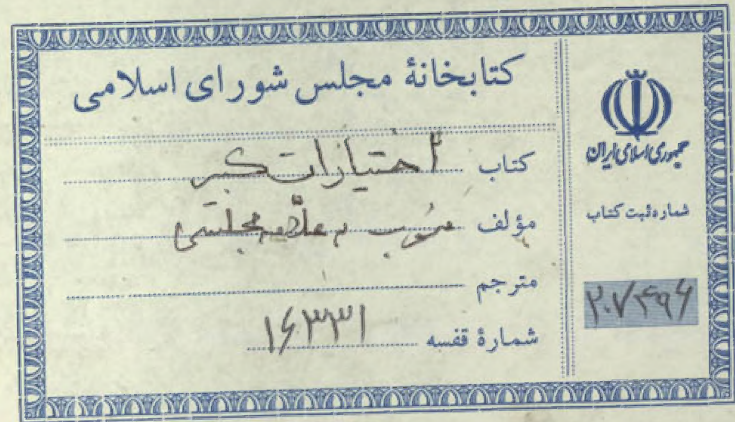 کتابخانهٔ مجلس شورای اسلامی
کتاب اختیارات کبیر
مؤلف منسوب به علامه مجلسی
مترجم
شمارهٔ قفسه ۱۶۳۳۱
جمهوری اسلامی ایران
شماره ثبت کتاب
۲۰۷۴۹۶